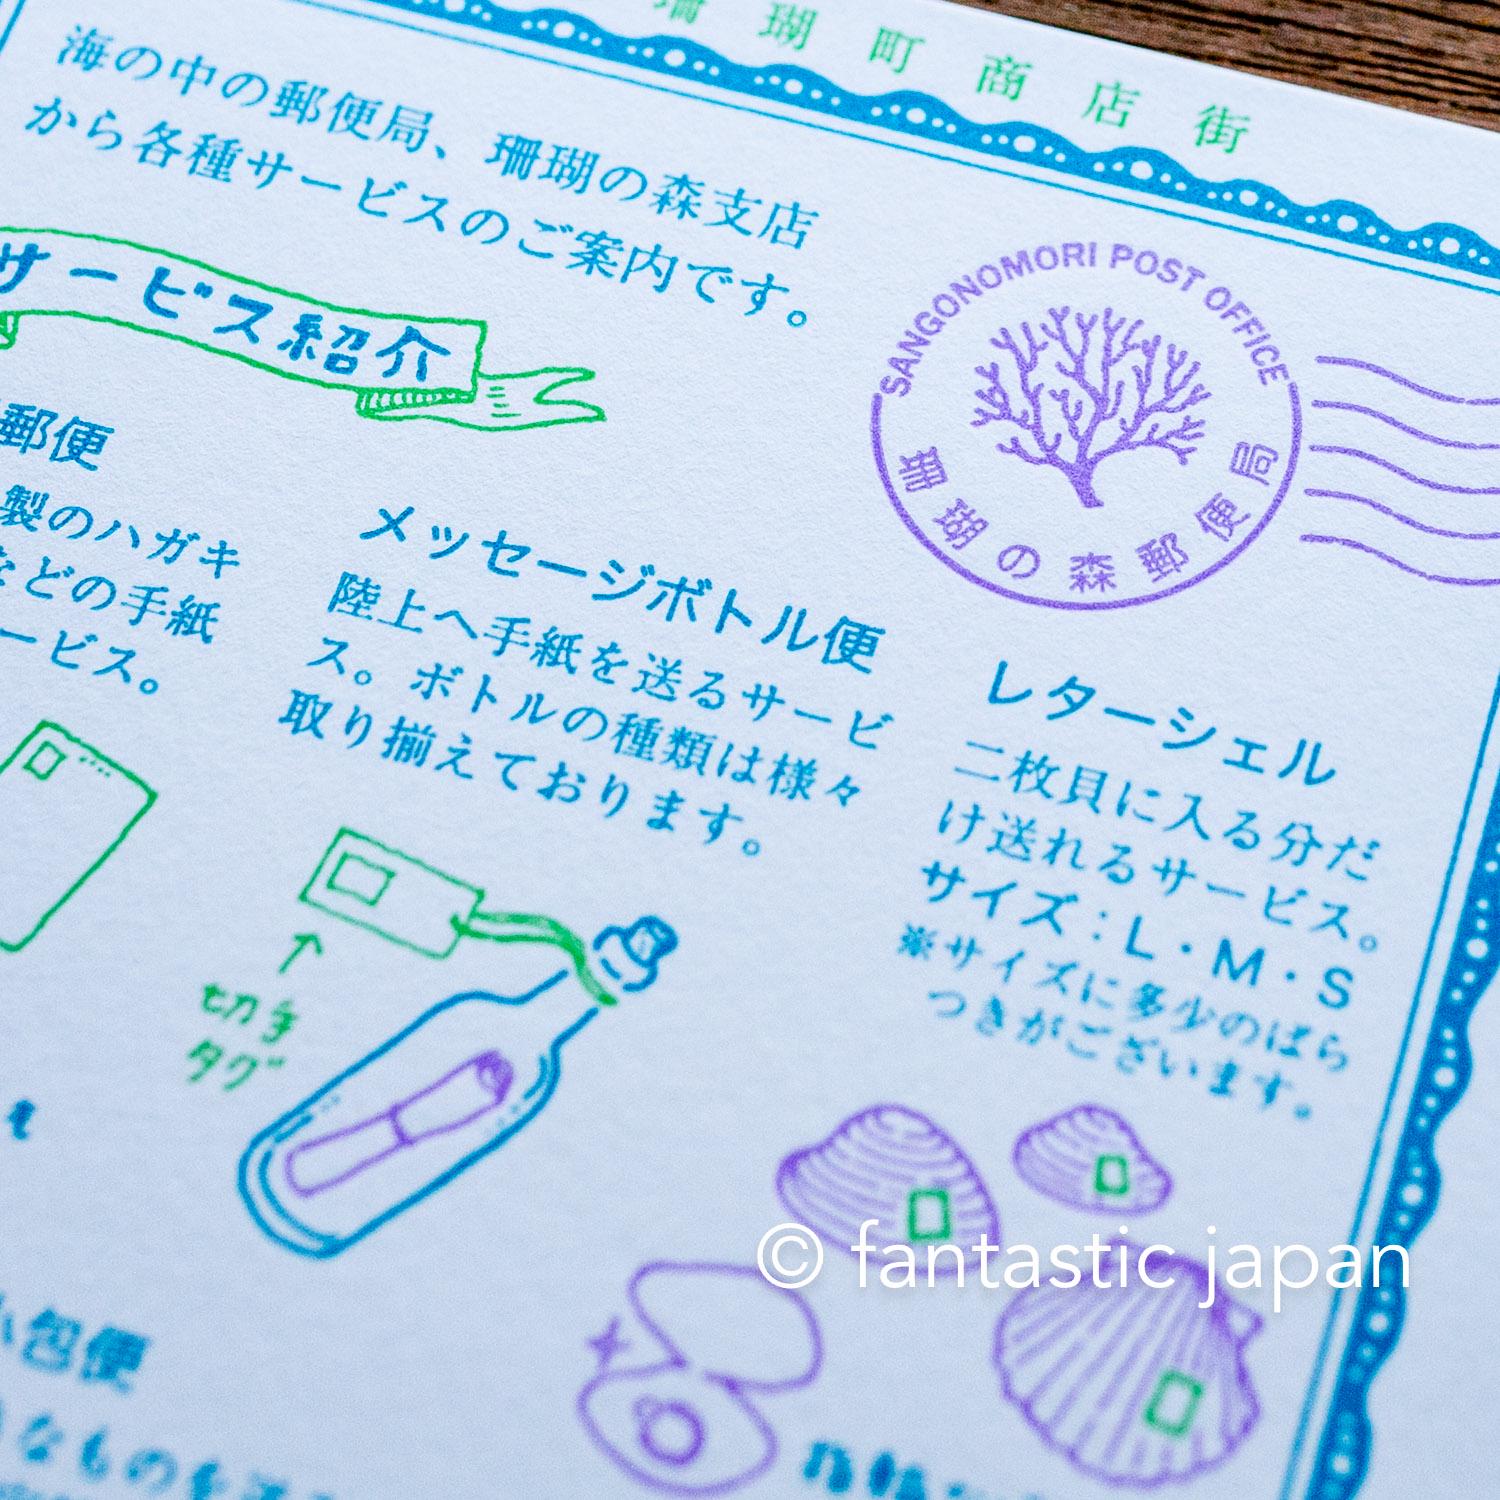 珊瑚町商店街
海の中の郵便局、珊瑚の森支店
から各種サービスのご案内です。
サービス紹介
SANGONOMORI POST OFFICE
珊瑚の森郵便局
郵便
製のハガキ
などの手紙
ービス。
メッセージボトル便
陸上へ手紙を送るサービ
ス。ボトルの種類は様々
取り揃えております。
切手
タグ
レターシェル
二枚貝に入る分だ
け送れるサービス。
サイズ：L・M・S
※サイズに多少のばら
つきがございます。
© fantastic japan
小包便
なものを送